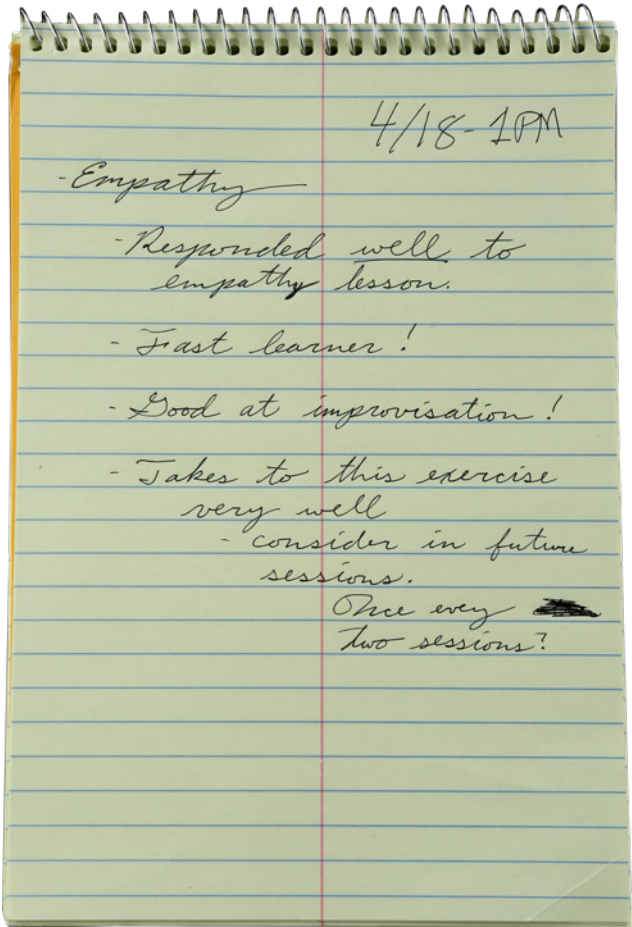 4/18-1PM
-Empathy
-Responded well to
empathy lesson.
- Fast learner!
- Good at improvisation!
- Takes to this exercise
very well
- consider in future
sessions.
Once evey
two sessions?